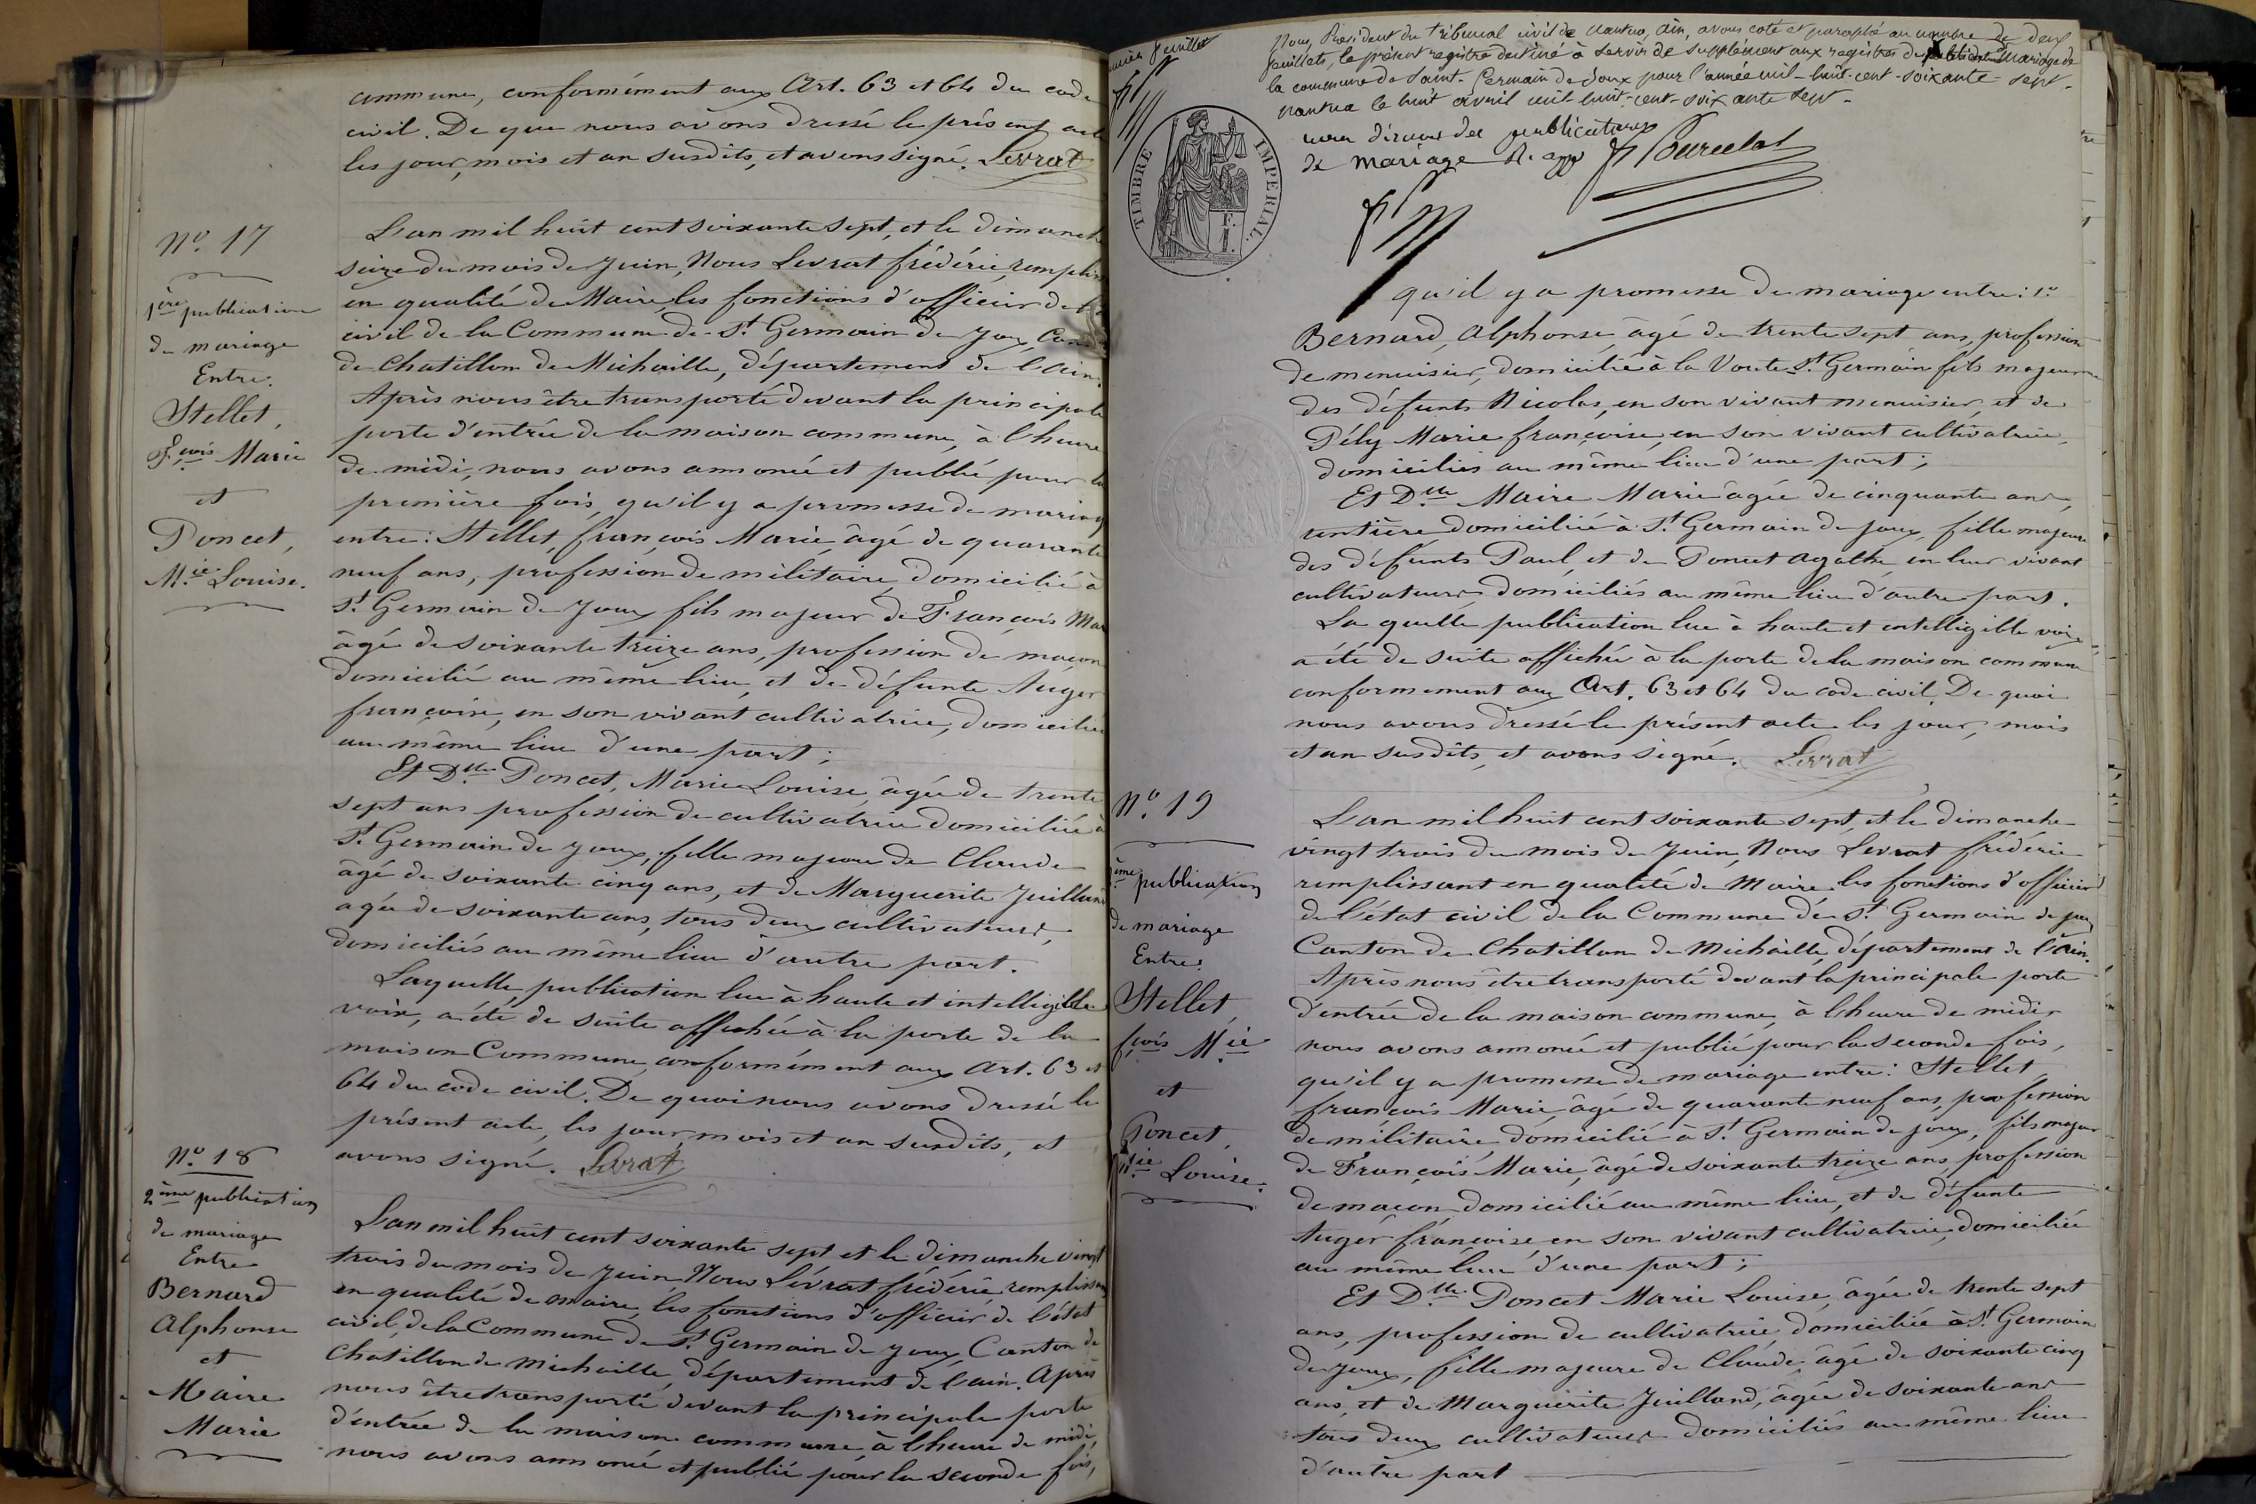 commune, conformément aux Art. 63 et 64 du code
civil. De que nous avons dressé le présent acte
les jour, mois et an susdits, et avons signé. Levrat
No. 17
1ère publication
de mariage
Entre.
Stellet,
F.çois Marie
et
Poncet,
M.ie Louise.
L'an mil huit cent soixante sept, et le dimanche
seize du mois de Juin, Nous Levrat frédéric, remplis
en qualité de Maire, les fonctions d'officier de
civil de la Commune de St Germain de Joux, Can
de Chatillon de Michaille, département de l'Ain.
Après nous être transporté devant la principale
porte d'entrée de la maison commune, à l'heure
de midi, nous avons annoncé et publié pour la
première fois, qu'il y a promesse de mariag
entre: Stellet, françois Marie, âgé de quarante
neuf ans, profession de militaire, domicilié à
St Germain de Joux, fils majeur de François Mar
âgé de soixante treize ans, profession de maçon
domicilié au même lieu, et de défunte Auger
françoise, en son vivant cultivatrice, domiciliée
au même lieu d'une part;
Et Dlle Poncet, Marie Louise, âgée de trente
sept ans profession de cultivatrice domiciliée à
St Germain de Joux, fille majeure de Claude
âgé de soixante cinq ans, et de Marguerite Juilland
agée de soixante ans, tous deux cultivateurs,
domiciliés au même lieu d'autre part.
Laquelle publication lue à haute et intelligible
voix, a été de suite affichée à la porte de la
maison Commune, conformément aux Art. 63 et
64 du code civil. De quoi nous avons dressé le
présent acte, les jour, mois et an susdits, et
avons signé. Levrat
No. 18
2ème publication
de mariage
Entre
Bernard
Alphonse
et
Maire
Marie
L'an mil huit cent soixante sept et le dimanche vingt
trois du mois de Juin, Nous Lévrat frédéric, remplissan
en qualité de maire, les fonctions d'officier de l'état
civil, de la Commune de St Germain de Joux, Canton de
Chatillon de Michaille, département de l'ain. Après
nous être transporté devant la principale porte
d'entrée de la maison commune à l'heure de midi,
nous avons annoncé et publié pour la seconde fois,
feuillet
Nous, Président du Tribunal civil de Nantua, Ain, avons coté et paraphé au nombre de deux
feuillets, le présent registre destiné à servir de supplément aux registres de publications Mariage de
la commune de Saint-Germain de Joux pour l'année mil-huit-cent-soixante-sept.
Nantua le huit avril mil huit-cent-soixante sept.
des publications
de mariage
TIMBRE IMPERIAL.
qu'il y a promesse de mariage entre: 1°
Bernard, Alphonse, âgé de trente sept ans, profession
de menuisier, domicilié à la Voute St Germain fils majeur
des défunts Nicolas, en son vivant menuisier, et de
Pély Marie françoise, en son vivant cultivatrice,
domiciliés au même lieu d'une part;
Et Dlle Maire Marie âgée de cinquante ans,
rentière domiciliée à St Germain de Joux, fille majeure
des défunts Paul, et de Poncet Agathe, en leur vivant
cultivateurs, domiciliés au même lieu d'autre part.
La quelle publication lue à haute et intelligible voix,
a été de suite affichée à la porte de la maison commune
conformement aux Art. 63 et 64 du code civil. De quoi
nous avons dressé le présent acte les jour, mois
et an susdits, et avons signé. Levrat
No. 19
ème publication
de mariage
Entre.
Stellet,
fçois Mie
et
Poncet,
Mie Louise.
L'an mil huit cent soixante sept, et le dimanche
vingt trois du mois de Juin, Nous Levrat frédéric
remplissant en qualité de Maire les fonctions d'officier
de l'état civil de la Commune de St Germain de Joux
Canton de Chatillon de Michaille, département de l'Ain.
Après nous être transporté devant la principale porte
d'entrée de la maison commune, à l'heure de midi,
nous avons annoncé et publié pour la seconde fois,
qu'il y a promesse de mariage entre: Stellet
françois Marie, âgé de quarante neuf ans, profession
de militaire domicilié à St Germain de Joux, fils majeur
de François Marie, âgé de soixante treize ans, profession
de maçon, domicilié au même lieu, et de défunte
Auger françoise en son vivant cultivatrice, domiciliée
au même lieu d'une part;
Et Dlle Poncet Marie Louise, âgée de trente sept
ans, profession de cultivatrice, domiciliée à St Germain
de Joux, fille majeure de Claude, âgé de soixante cinq
ans, et de Marguerite Juilland, âgée de soixante ans
tous deux cultivateurs domiciliés au même lieu
d'autre part